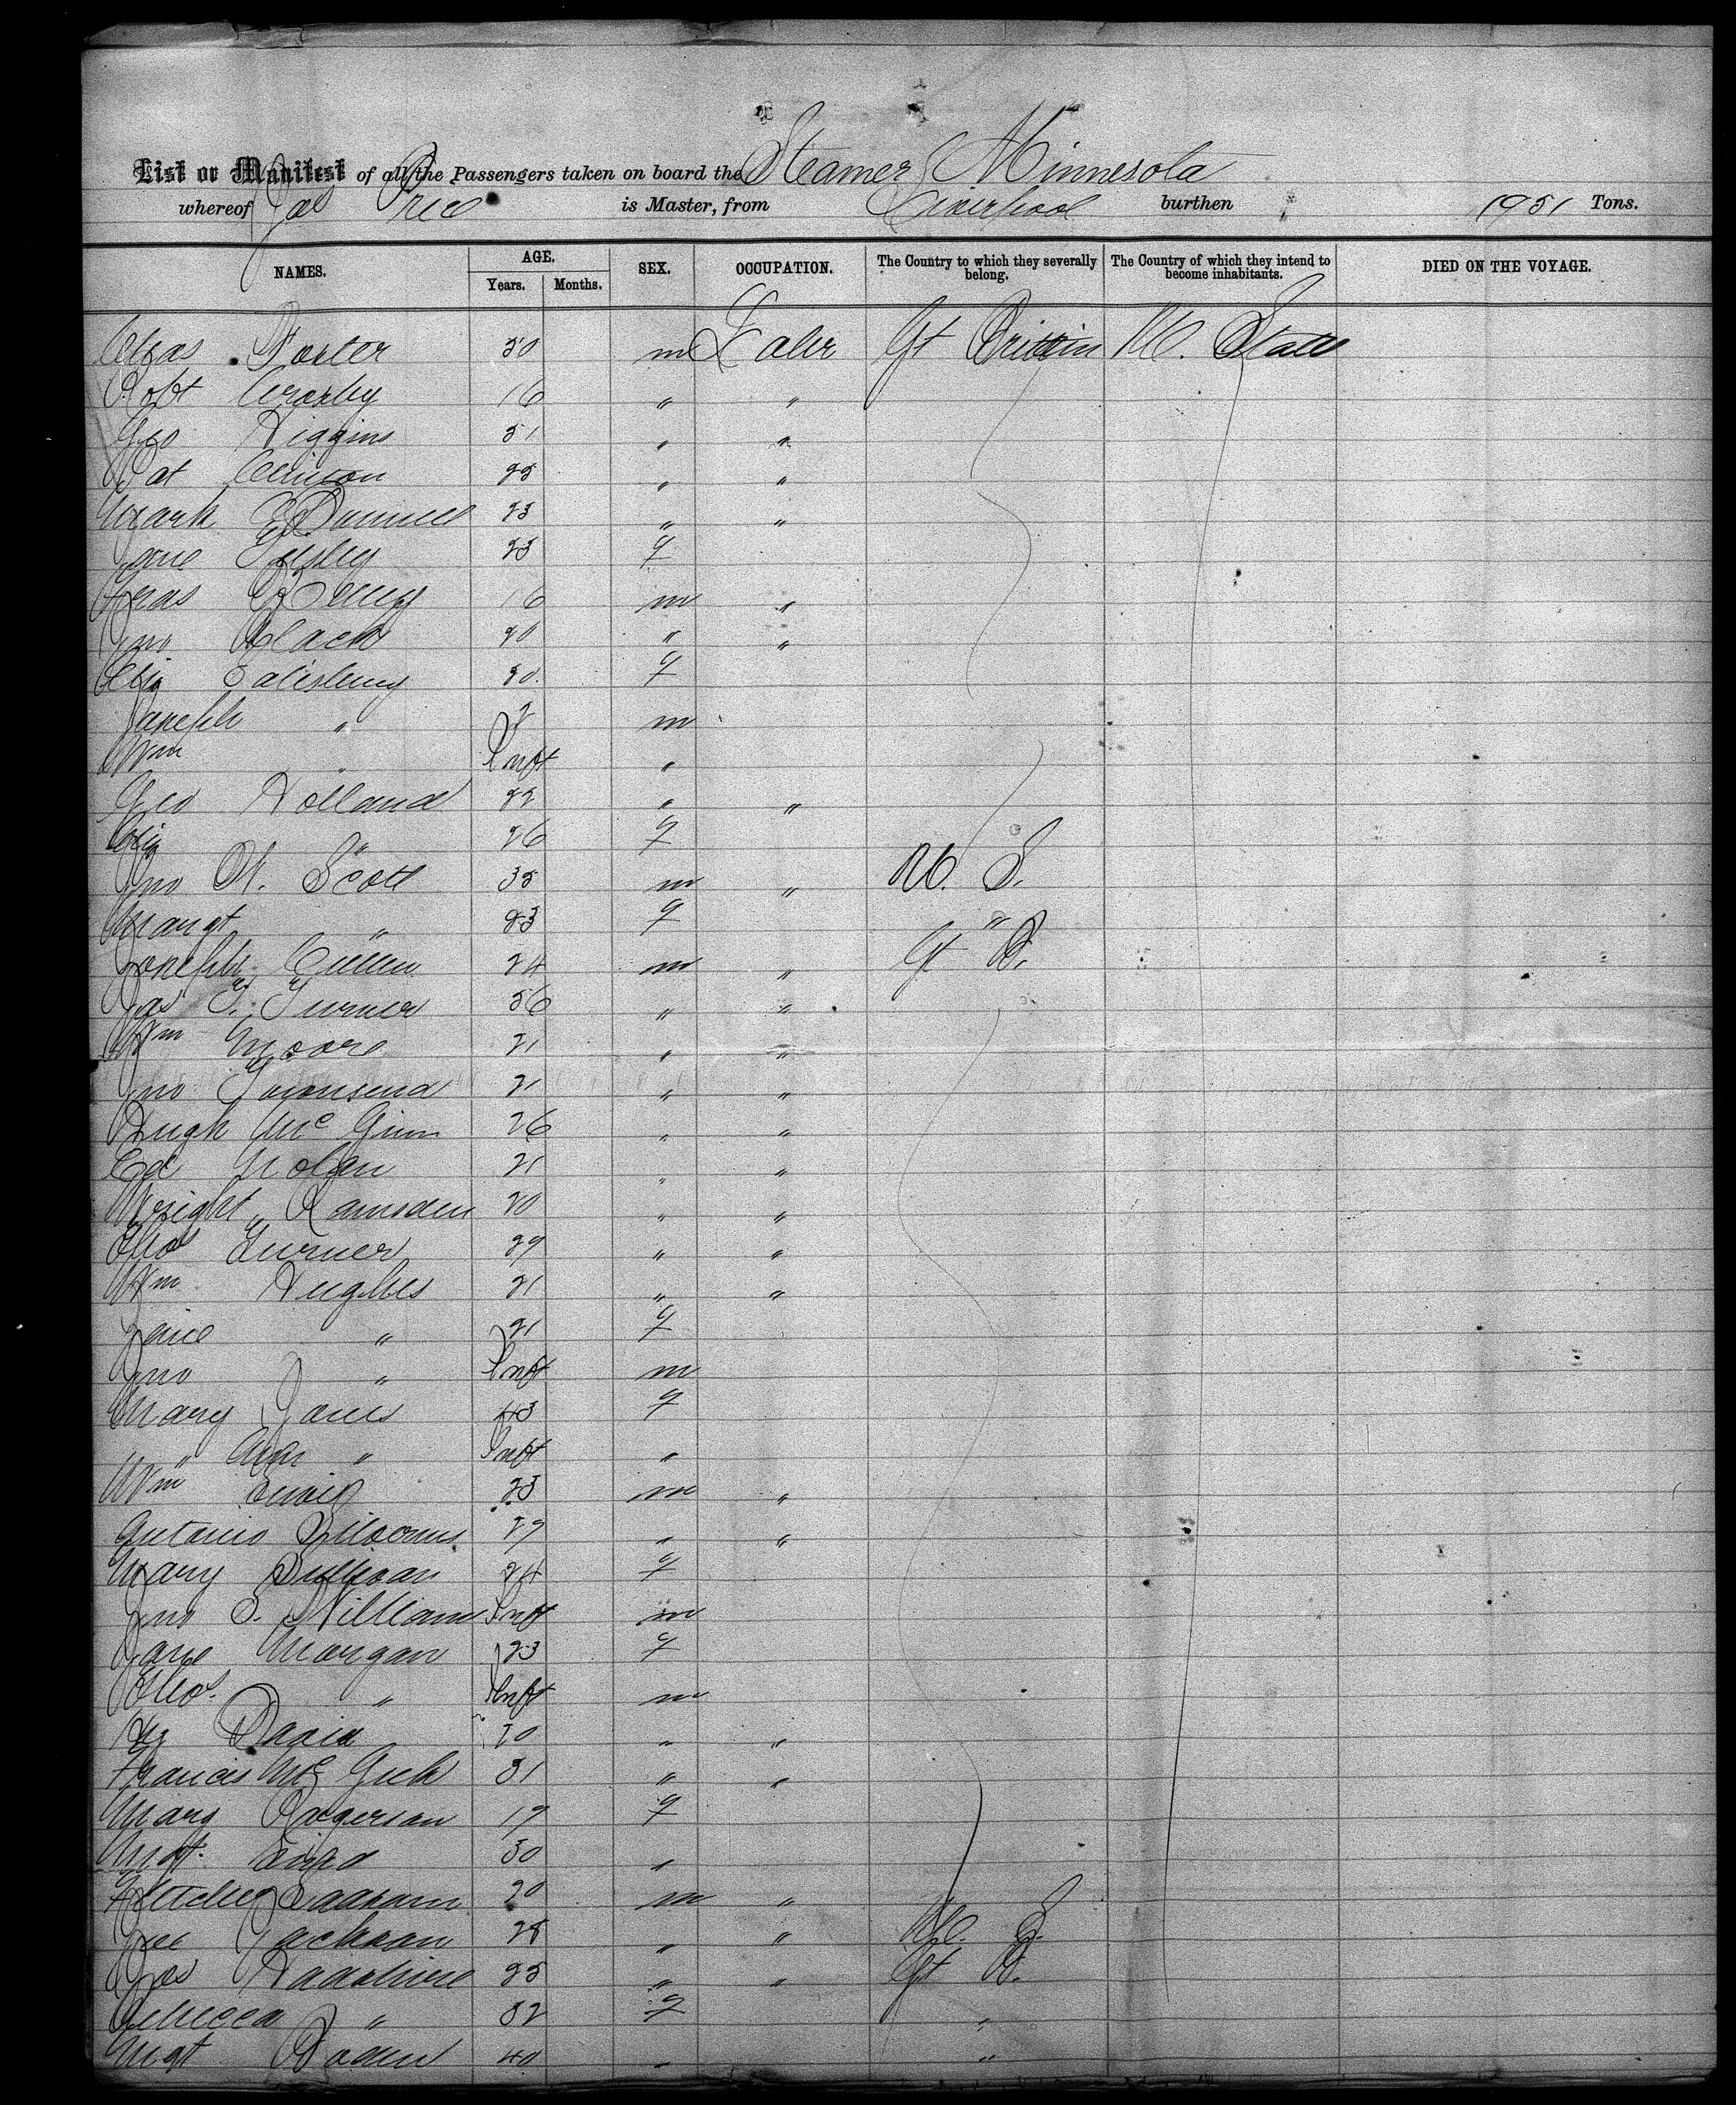 List or Manifest of all the Passengers taken on board the Steamer Minnesota
whereof Jas Price is Master, from Liverpool burthen 1951 Tons.
NAMES. AGE. Years. Months. SEX. OCCUPATION. The Country to which they severally belong. The Country of which they intend to become inhabitants. DIED ON THE VOYAGE.
Chas Foster 50 m Labr Gt Brittin U. States
Robt Crosby 16 " "
Geo Higgins 51 " "
Pat 25 " "
Mark 23 " "
Jane 23 f
16 m "
Jno Black 20 " "
Eliz Salisbury 30 f
Joseph " 2 m
Wm " Inft "
Geo Holland 22 " "
Eliz " 26 f
Jno N. Scott 35 m " U. S.
Margt " 23 f "
Joseph Cullen 24 m " Gt B.
Jas T. Turner 56 " "
Wm Moore 21 " "
Jno Townsend 21 " "
Hugh Mc Ginn 26 " "
Ed Nolan 21 " "
Wright Ramsden 20 " "
Thos Turner 29 " "
Wm Hughes 21 " "
Jane " 21 f
Jno " Inft m
Mary Jones 43 f
" Ann " Inft "
Wm 23 m "
Antonio 27 " "
Mary Sullivan 24 f
Jno S. Williams Inft m
Jane Morgan 23 f
Thos. " Inft m
Hy David 20 " "
Francis Mc 31 " "
Mary Rogerson 19 f
Mgt. 30 "
20 m "
Geo Jackson 28 " " U. S.
Jos 25 " " Gt B.
Rebecca " 32 f "
Mgt Boden 40 " "